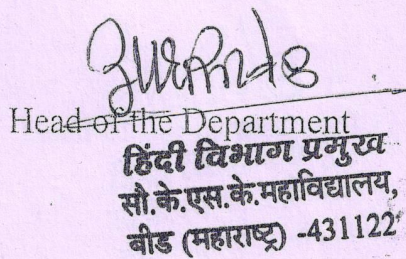 Head of the Department
हिंदी विभाग प्रमुख
सौ.के.एस.के.महाविद्यालय,
बीड (महाराष्ट्र) -431122